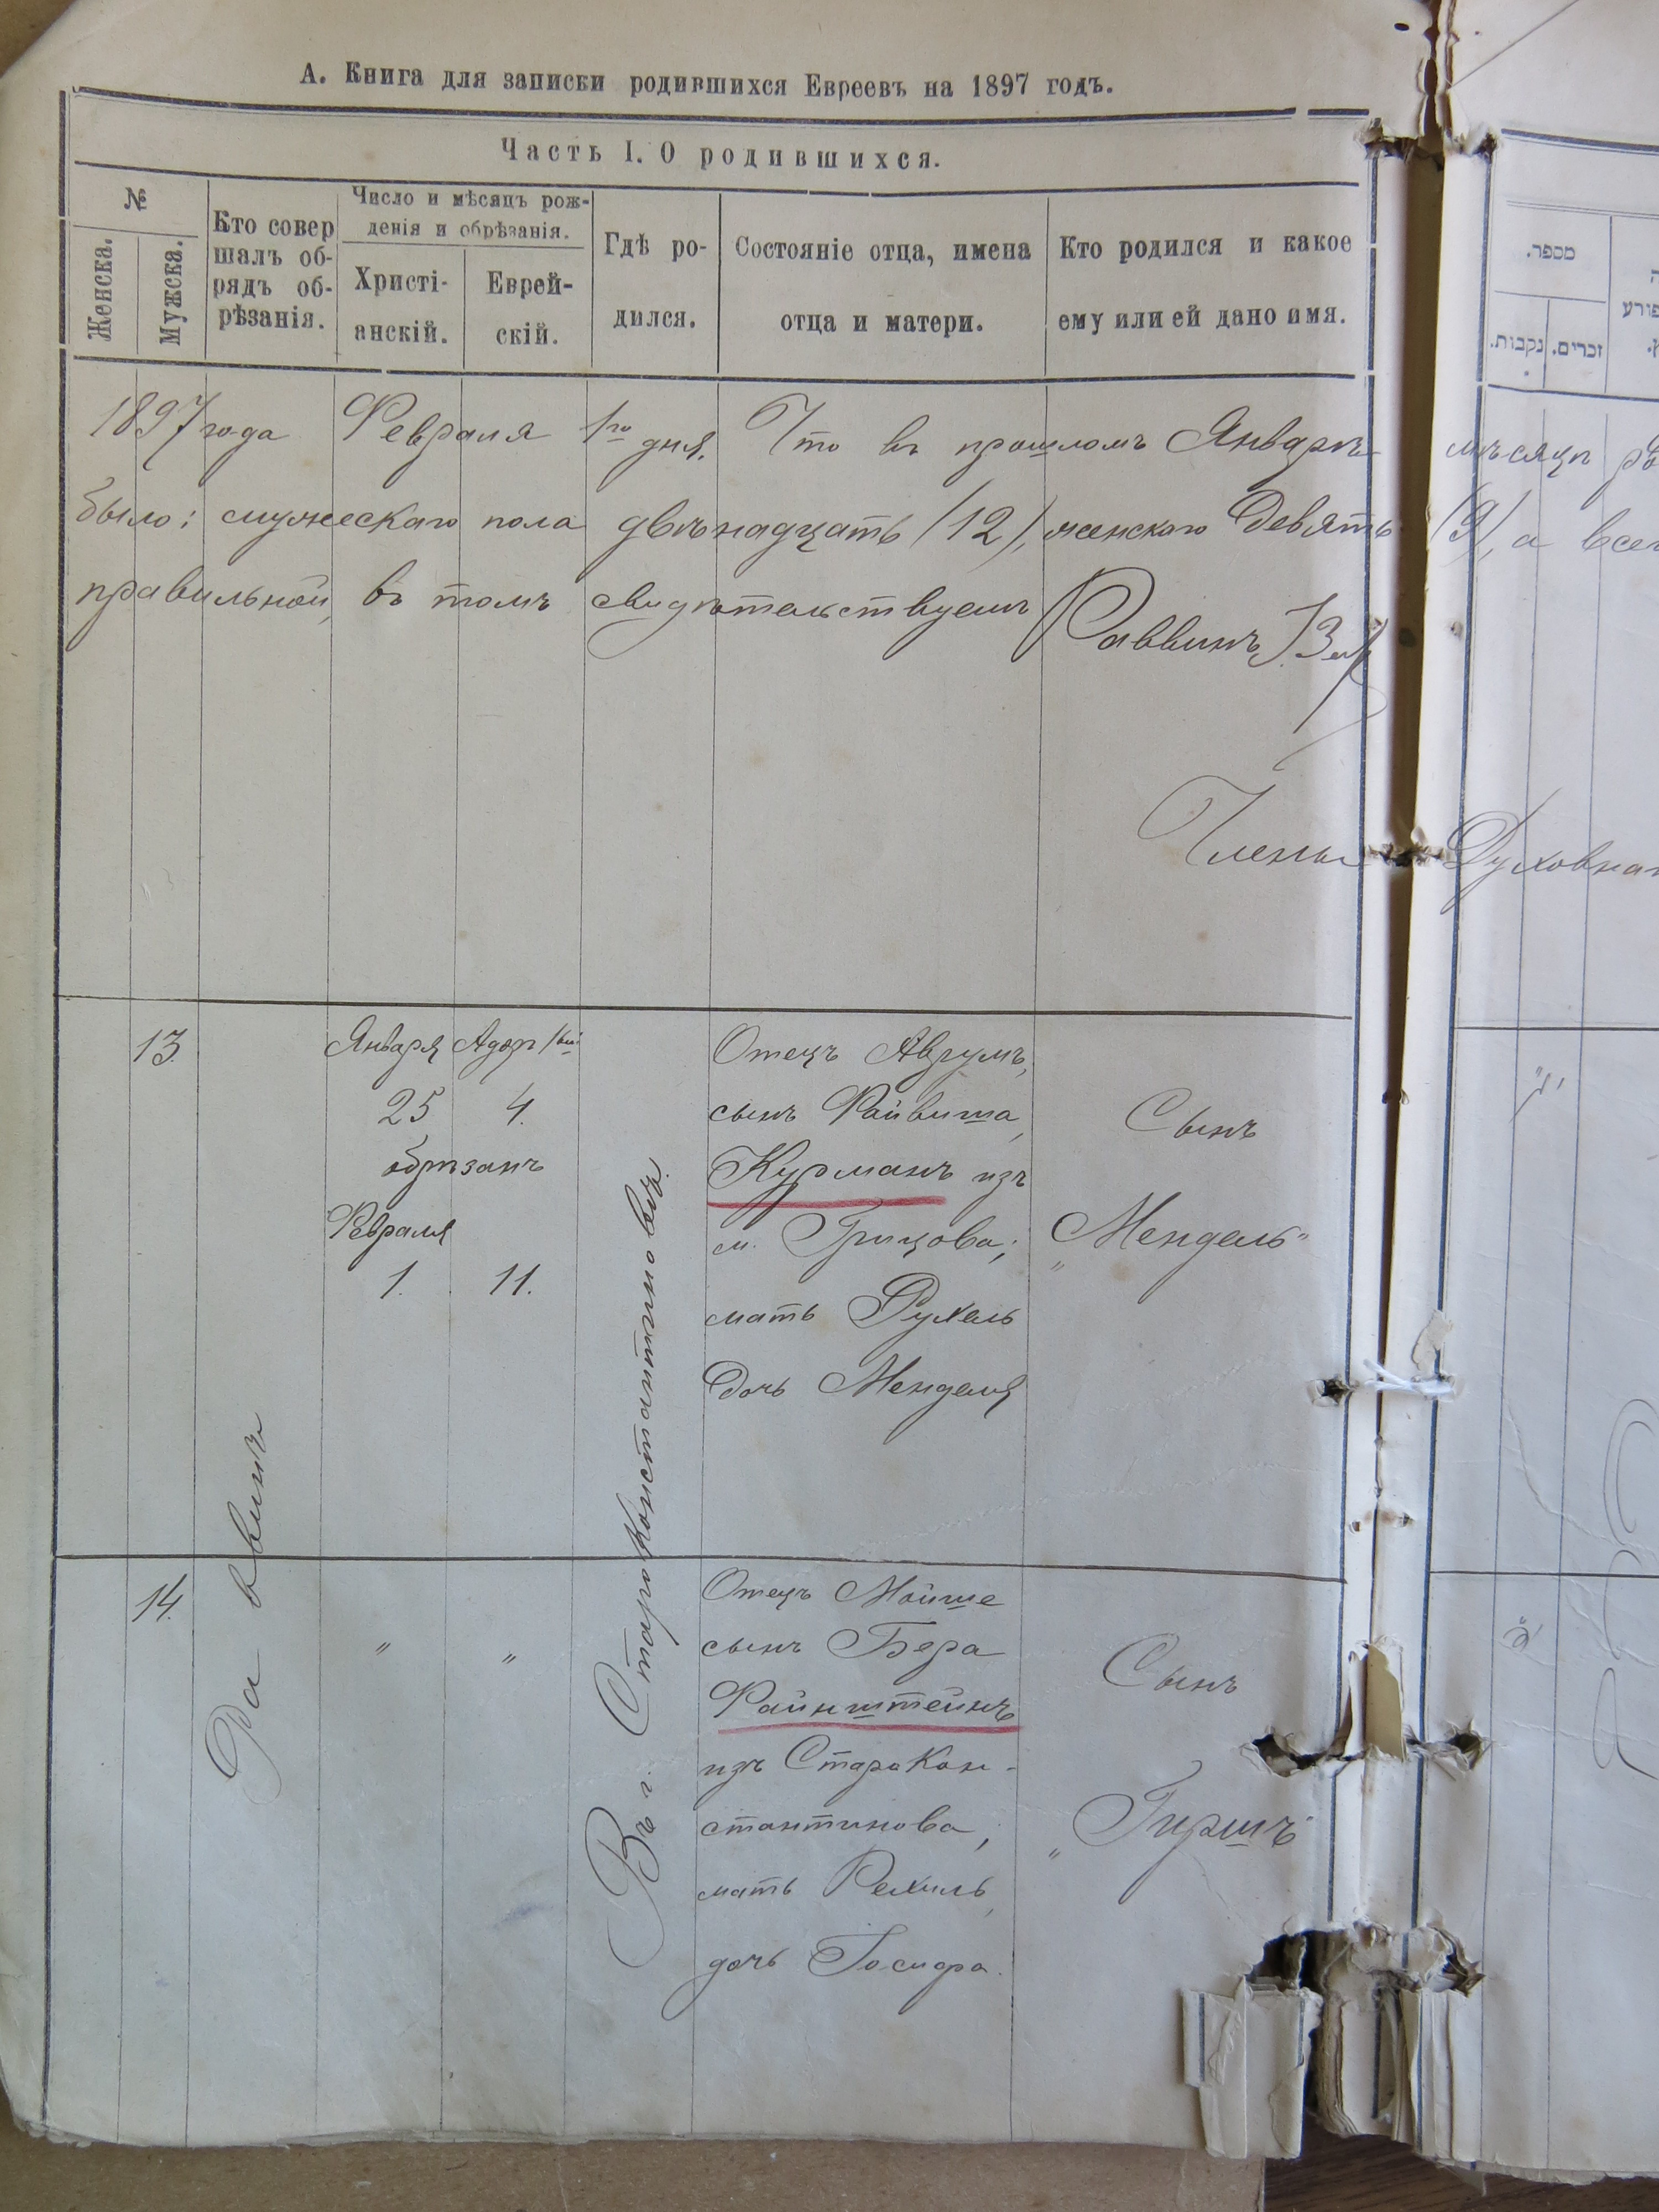 А. Книга для записки родившихся Евреевъ на 1897 годъ.
Часть I. О родившихся.
№
Женска.
Мужска.
Кто совер
шалъ об-
рядъ об-
рѣзанія.
Число и мѣсяцъ рож-
денія и обрѣзанія.
Христі-
анскій.
Еврей-
скій.
Гдѣ ро-
дился.
Состояніе отца, имена
отца и матери.
Кто родился и какое
ему или ей дано имя.
מספר.
נקבות.
זכרים.
1897 года Февраля 1го дня. Что въ прошломъ Январѣ мѣсяцѣ
было: мужескаго пола двѣнадцать (12), женскаго Девять (9), а
правильной, въ томъ свидѣтельствуемъ Раввинъ
Члены Духовнаго
13.
Января Адоръ 1ый
25 4.
обрѣзанъ
Февраля
1. 11.
Отецъ Аврумъ,
сынъ Файвиша,
Курманъ изъ
м. Грицова;
мать Рухель
дочь Менделя
Сынъ
„Мендель"
Раввинъ
Въ г. Староконстантиновѣ.
14.
" "
Отецъ Мойше
сынъ Бера
Файнштейнъ
изъ СтароКон-
стантинова,
мать Рехиль,
дочь Іосифа.
Сынъ
„Гиршъ"